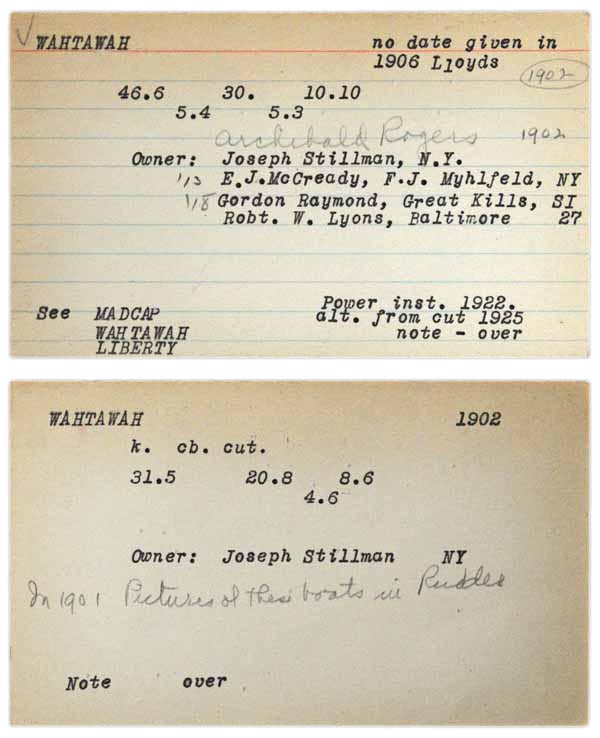 WAHTAWAH no date given in
1906 Lloyds
1902
46.6 30. 10.10
5.4 5.3
Archibald Rogers 1902
Owner: Joseph Stillman, N.Y.
'13 E.J.McCready, F.J. Myhlfeld, NY
'18 Gordon Raymond, Great Kills, SI
Robt. W. Lyons, Baltimore 27
Power inst. 1922.
See MADCAP alt. from cut 1925
WAHTAWAH note - over
LIBERTY
WAHTAWAH 1902
k. cb. cut.
31.5 20.8 8.6
4.6
Owner: Joseph Stillman NY
In 1901 Pictures of these boats in Rudder
Note over